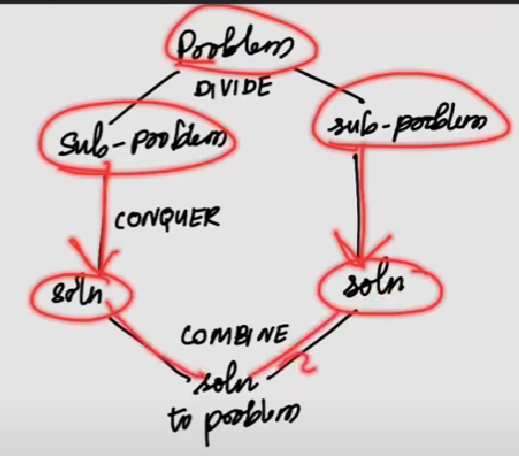 Problem
DIVIDE
Sub-problem
sub-problem
CONQUER
soln
soln
COMBINE
soln
to problem